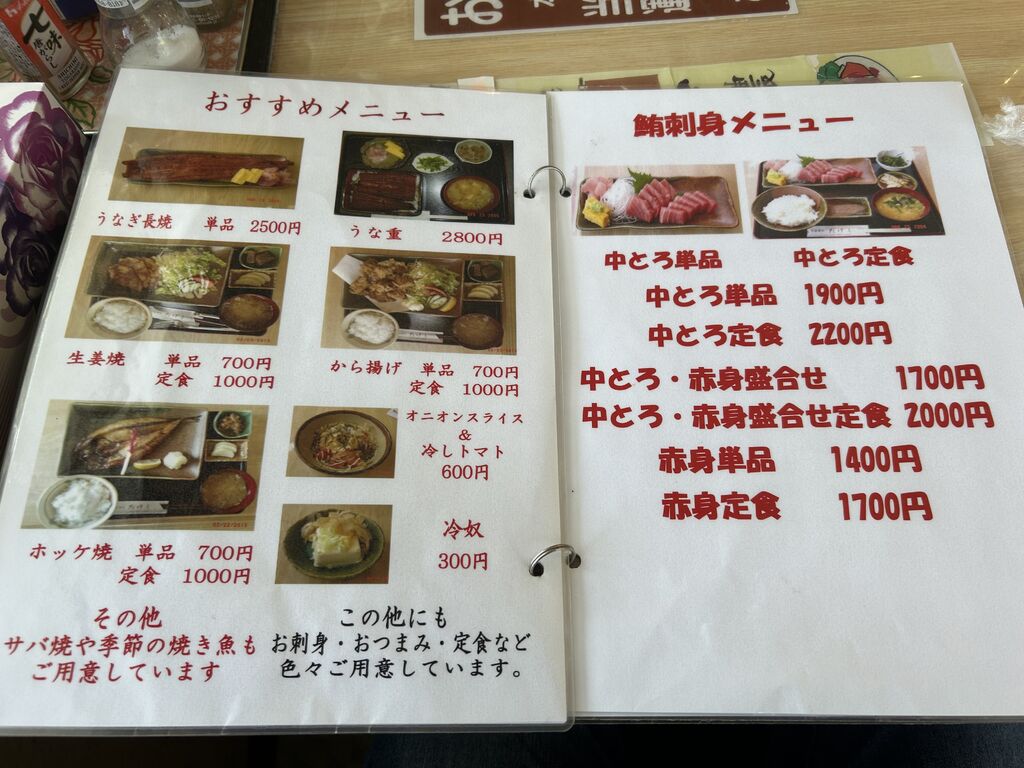 七味
唐からし
おすすめメニュー
うなぎ長焼 単品 2500円
うな重 2800円
生姜焼 単品 700円
定食 1000円
から揚げ 単品 700円
定食 1000円
ホッケ焼 単品 700円
定食 1000円
オニオンスライス
&
冷しトマト
600円
冷奴
300円
その他
サバ焼や季節の焼き魚も
ご用意しています
この他にも
お刺身・おつまみ・定食など
色々ご用意しています。
鮪刺身メニュー
中とろ単品 中とろ定食
中とろ単品 1900円
中とろ定食 2200円
中とろ・赤身盛合せ 1700円
中とろ・赤身盛合せ定食 2000円
赤身単品 1400円
赤身定食 1700円